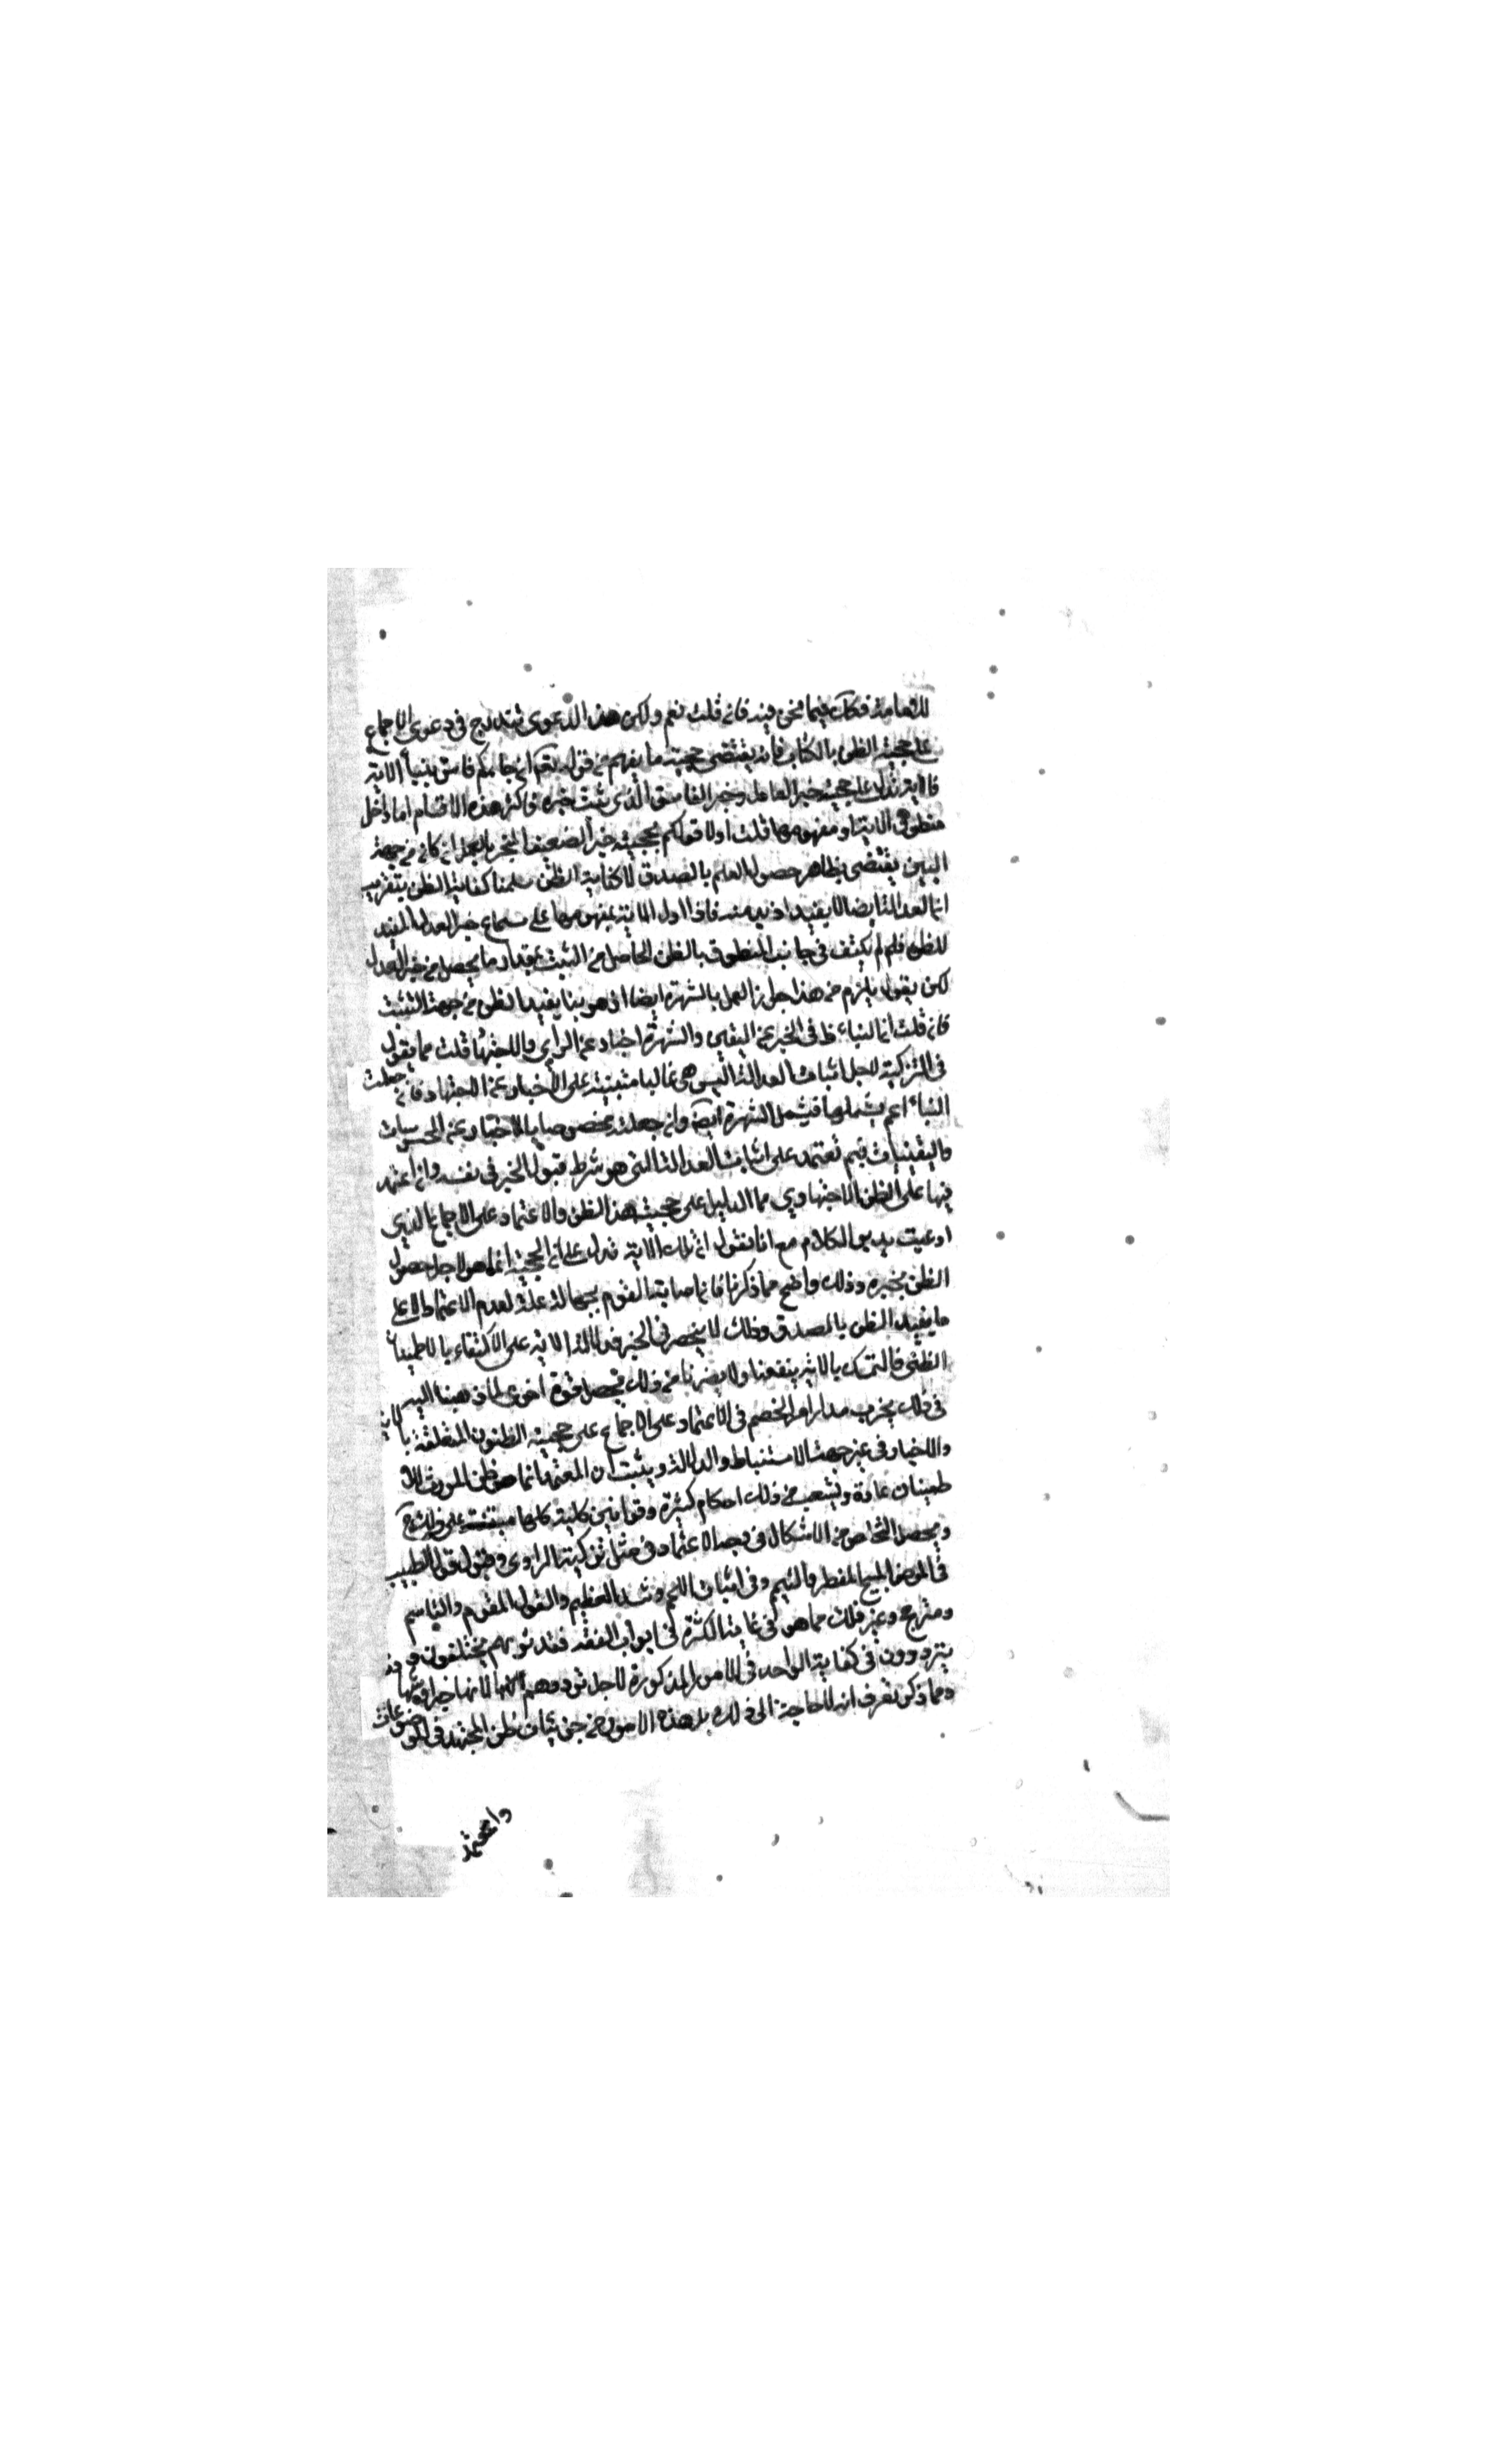 للعامة فكك فيما نحن فيه فان قلت نعم ولكن هذا الدعوى تندرج في دعوى الاجماع
على حجية الظن بالكتاب فانه يقتضي حجية ما يفهم من قوله تعم ان جاءكم فاسق بنبأ الاية
فالاية تدل على حجية خبر العادل وخبر الفاسق الذي تثبت خبره فاكثر هذه الاقسام اما داخل
منطوق الاية او مفهومها قلت اولا قولكم بحجية خبر الضعيف المنجبر بالعمل ان كان من جهة
التبين يقتضي بظاهر حصول العلم بالصدق لا كفاية الظن سلمنا كفاية الظن بتقريب
ان العدالة ايضا لا يفيد ازيد منه فاذا دل الاية بمفهومها على سماع خبر العدل المفيد
للظن فلم لم يكتف في جانب المنطوق بالظن الحاصل من التثبت بمقدار ما يحصل من خبر العدل
لكن يقول يلزم من هذا جواز العمل بالشهرة ايضا اذ هو نبأ يفيد الظن من جهة التثبت
فان قلت ان النباء ظ في الخبر عن اليقين والشهرة اخبار عن الراي والاجتهاد قلت مما يقول
في التزكية لاجل اثبات العدالة اليس هي غالبا مبتنية على الاخبار عن الاجتهاد فان جعلت
النباء اعم يشملها فيشمل الشهرة ايضا وان جعلته مخصوصا بالاخبار عن المحسوسات
واليقينيات فبم تعتمد على اثبات العدالة التي هو شرط قبول الخبر في نفسه وان اعتمد
فيها على الظن الاجتهادي مما الدليل على حجية هذا الظن والاعتماد على الاجماع الذي
ادعيت يدير الكلام مع انا نقول ان تلك الاية تدل على ان الحجية انما هو لاجل حصول
الظن بخبره وذلك واضح مما ذكرنا فان اصابة القوم بجهالة علة لعدم الاعتماد الا على
ما يفيد الظن بالصدق وذلك لا ينحصر في الخبر فدلالة الاية على الاكتفاء بالاطمينان
الظني فالتمسك بالاية ينفعنا ولا يضرنا من ذلك يحصل قوة اخرى لما ذهبنا اليه
في ذلك يخرب مدار امر الخصم في الاعتماد على الاجماع على حجية الظنون المتعلقة بالكتاب
والاخبار في غير جهة الاستنباط والدلالة ويثبت ان المعتمد انما هو ظن المورث للا
طمينان عادة ويتشعب من ذلك احكام كثيرة وقوانين كلية كلها مبتنية على ذلك
ويحصل التخلص من الاشكال في وجه الاعتماد في مثل تزكية الراوي وقبول قول الطبيب
في المرض المبيح للفطر والتيمم وفي اثبات اللحم وشد العظم والقول المقوم والقاسم
ومترجم وغير ذلك مما هو في غاية الكثرة في ابواب الفقه فقد تريهم يختلفون
يترددون في كفاية الواحد في الامور المذكورة لاجل ترددهم
ومما ذكر تعرف انه لا حاجة الى ذلك بل هذه الامور من جزئيات ظن المجتهد في الموضوعات
واعتمد